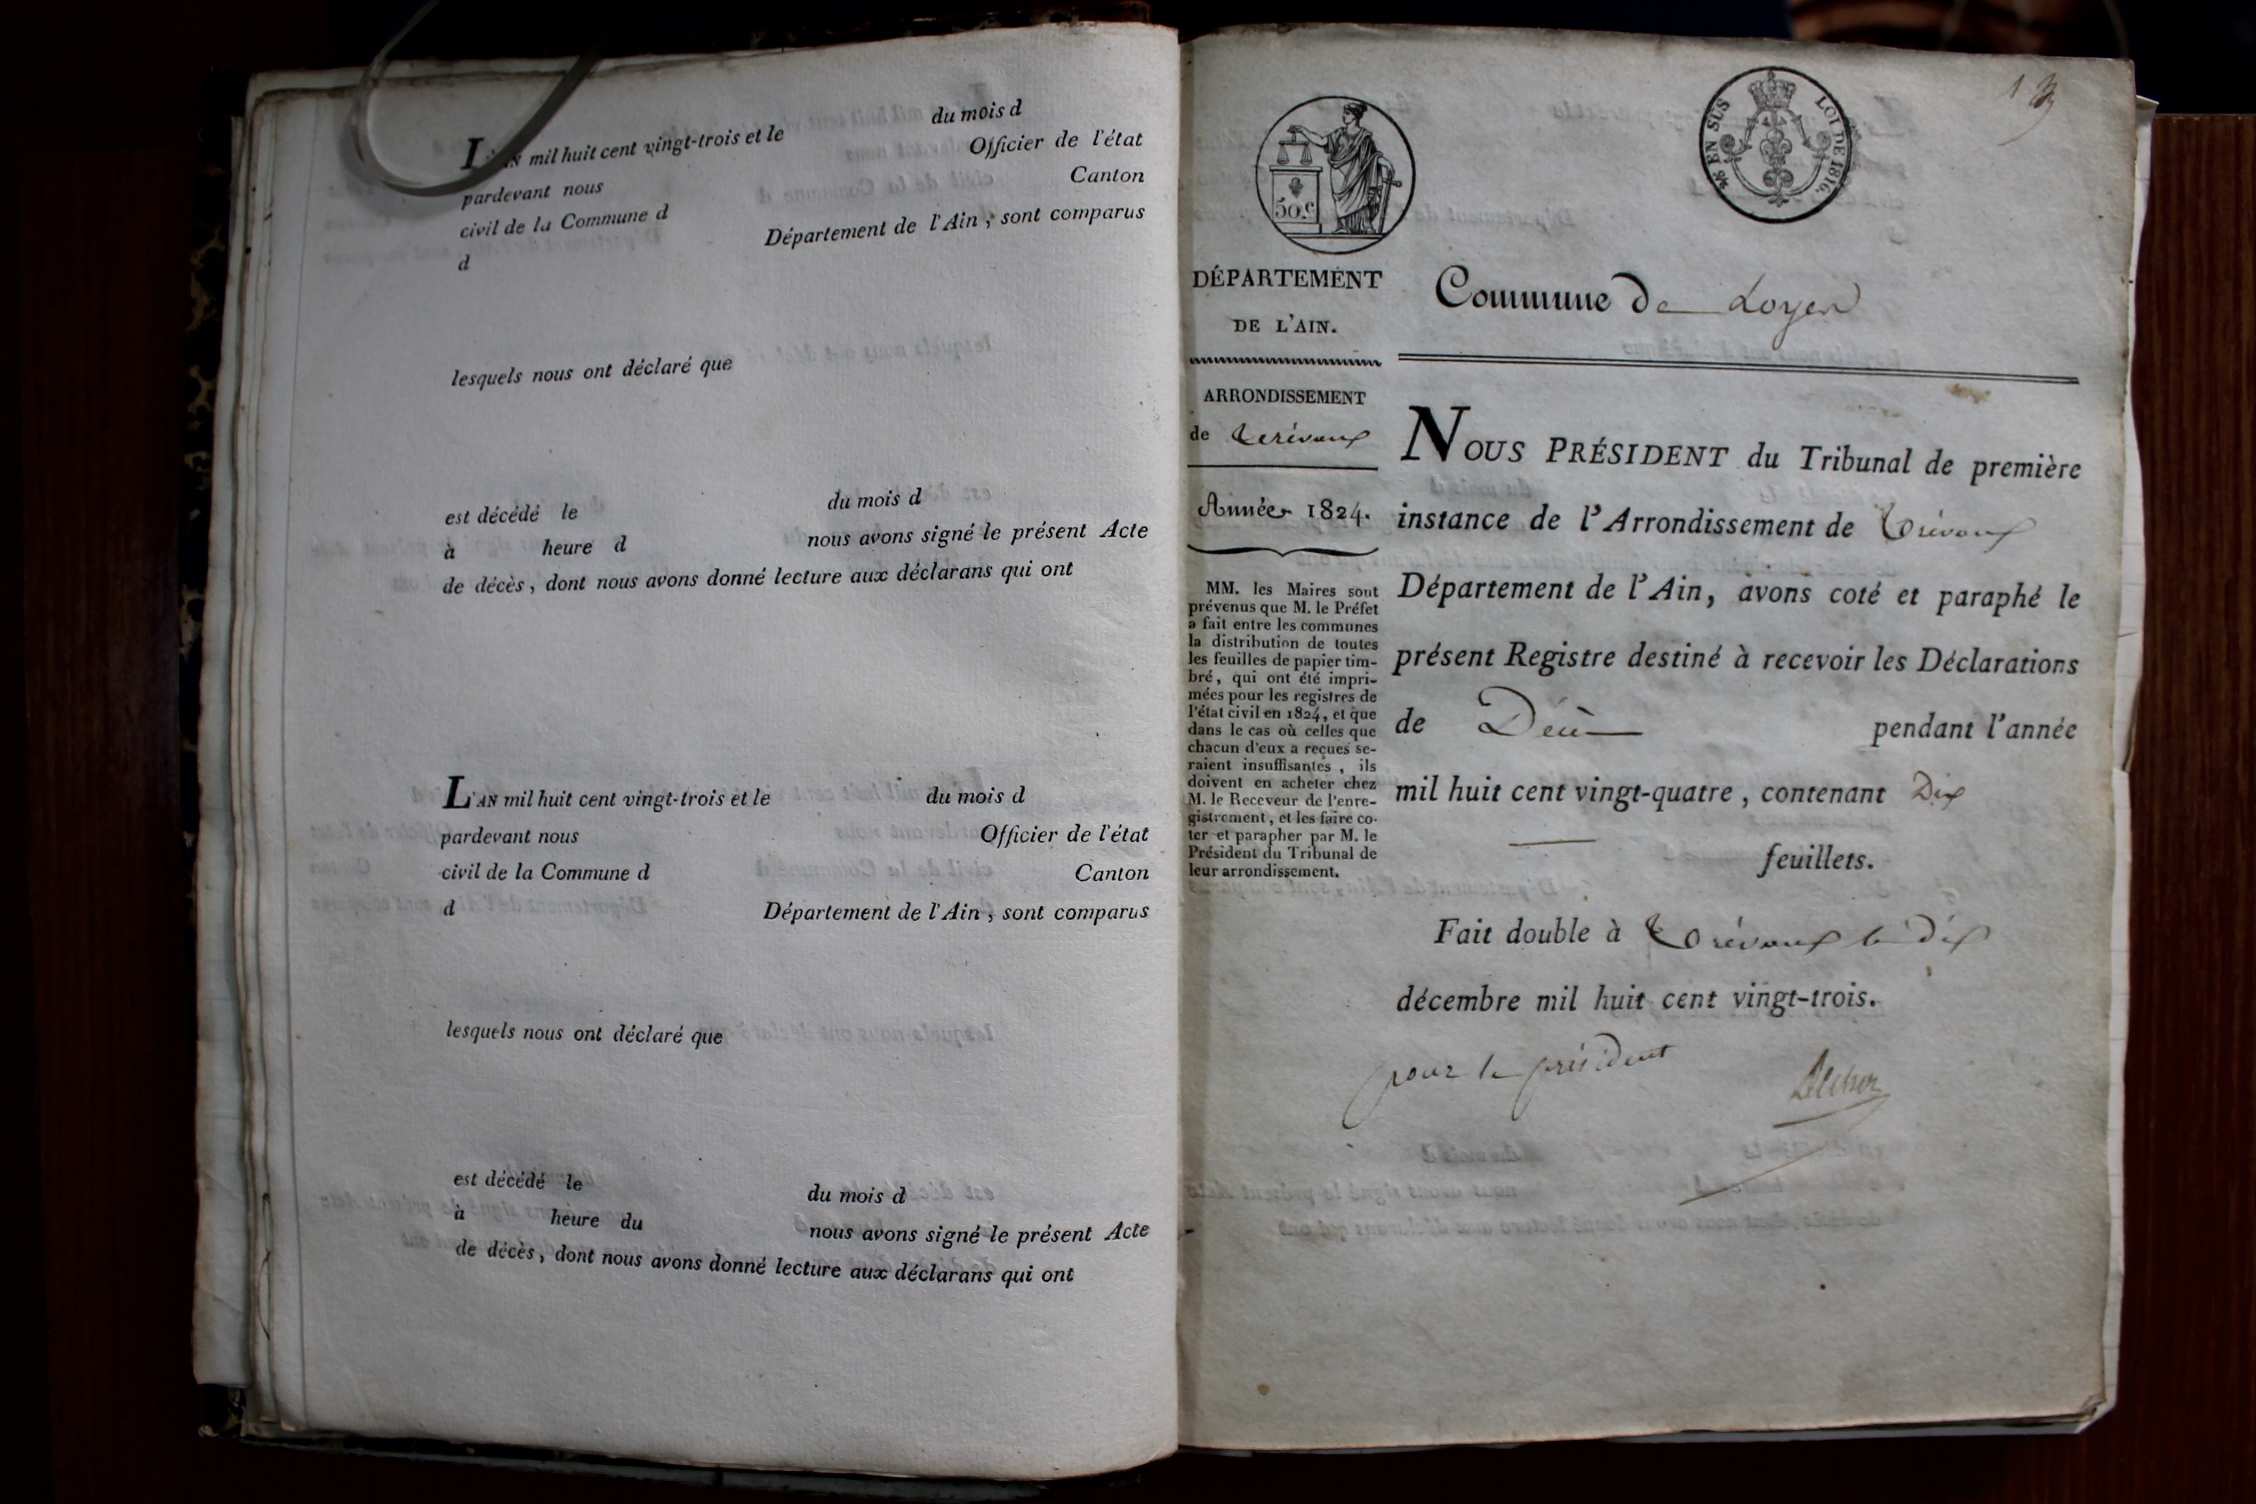 L'AN mil huit cent vingt-trois et le du mois d
pardevant nous Officier de l'état
civil de la Commune d Canton
d Département de l'Ain, sont comparus
lesquels nous ont déclaré que
est décédé le du mois d
à heure d nous avons signé le présent Acte
de décès, dont nous avons donné lecture aux déclarans qui ont
L'AN mil huit cent vingt-trois et le du mois d
pardevant nous Officier de l'état
civil de la Commune d Canton
d Département de l'Ain, sont comparus
lesquels nous ont déclaré que
est décédé le du mois d
à heure du nous avons signé le présent Acte
de décès, dont nous avons donné lecture aux déclarans qui ont
50.c
EN SUS LOI DE 1816.
DÉPARTEMENT
DE L'AIN.
ARRONDISSEMENT
de Trévoux
Année 1824.
MM. les Maires sont
prévenus que M. le Préfet
a fait entre les communes
la distribution de toutes
les feuilles de papier tim-
bré, qui ont été impri-
mées pour les registres de
l'état civil en 1824, et que
dans le cas où celles que
chacun d'eux a reçues se-
raient insuffisantes, ils
doivent en acheter chez
M. le Receveur de l'enre-
gistrement, et les faire co-
ter et parapher par M. le
Président du Tribunal de
leur arrondissement.
Commune de Loyes
NOUS PRÉSIDENT du Tribunal de première
instance de l'Arrondissement de Trévoux
Département de l'Ain, avons coté et paraphé le
présent Registre destiné à recevoir les Déclarations
de Décès pendant l'année
mil huit cent vingt-quatre, contenant Dix
feuillets.
Fait double à Trévoux le dix
décembre mil huit cent vingt-trois.
pour le président